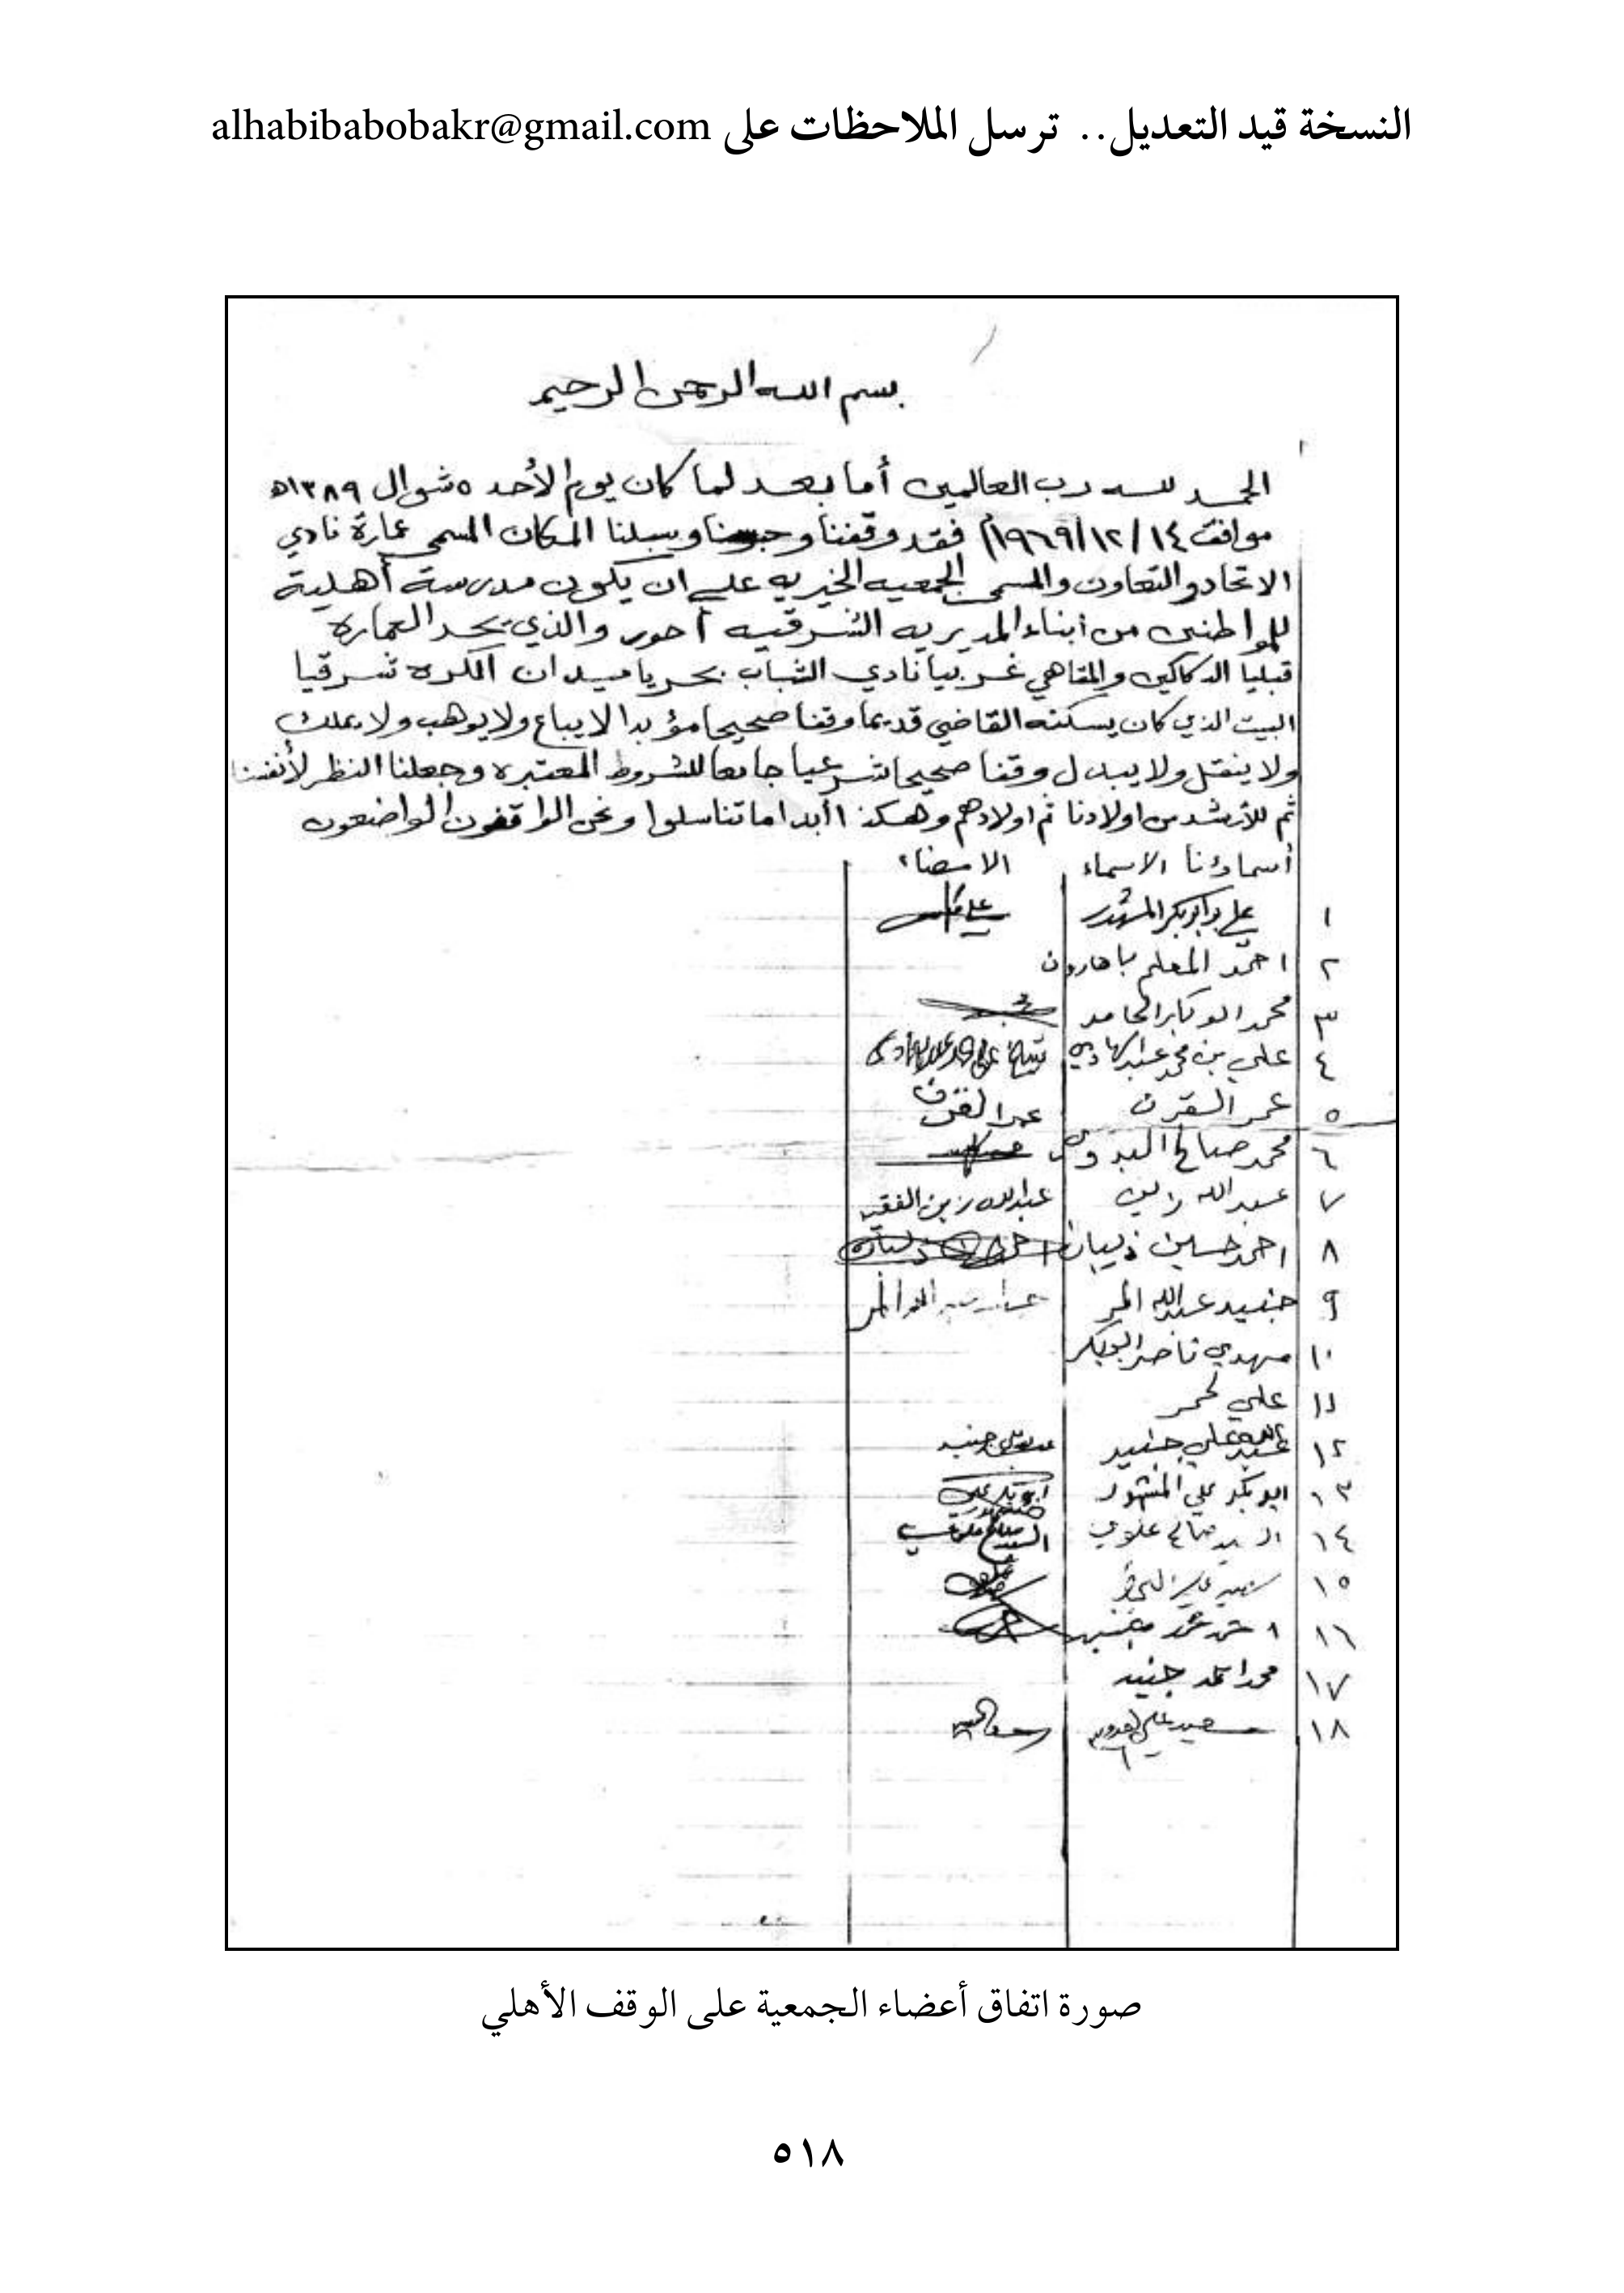 النسخة قيد التعديل.. ترسل الملاحظات على alhabibabobakr@gmail.com
بسم الله الرحمن الرحيم
الحمد لله رب العالمين أما بعد لما كان يوم الأحد ٥ شوال ١٣٨٩ه
موافق ١٤/١٢/١٩٦٩م فقد وقفنا وحبسنا وسبلنا المكان المسمى عمارة نادي
الاتحاد والتعاون والمسمى الجمعيه الخيريه على ان يكون مدرسة أهلية
للمواطنين من أبناء المديريه الشرقيه أحور والذي يحد العماره
قبليا الدكاكين والمقاهي غربيا نادي الشباب بحريا ميدان الكره شرقيا
البيت الذي كان يسكنه القاضي قديما وقفا صحيحا مؤبدا لا يباع ولا يوهب ولا يملك
ولا ينقل ولا يبدل وقفا صحيحا شرعيا جامعا للشروط المعتبره وجعلنا النظر لأنفسنا
ثم للأرشد من اولادنا ثم اولادهم وهكذا أبدا ما تناسلوا ونحن الواقفون الواضعون
أسماؤنا الاسماء الامضاء
١ علي بن ابوبكر المشهور
٢ احمد المعلم باهارون
٣ محمد الحامد
٤ علي بن محمد عبدالهادي
٥ عمر
٦ محمد صالح البدوي
٧ عبدالله زين عبدالله زين الفقيه
٨ احمد حسين ذيبان
٩ جنيد عبدالله المر
١٠ مهدي ناصر ابوبكر
١١ علي لحمر
١٢ عبدالله علي جنيد
١٣ ابوبكر علي المشهور
١٤ السيد صالح علوي
١٥
١٦ احمد محمد
١٧ محمد احمد جنيد
١٨ سعيد علي
صورة اتفاق أعضاء الجمعية على الوقف الأهلي
٥١٨